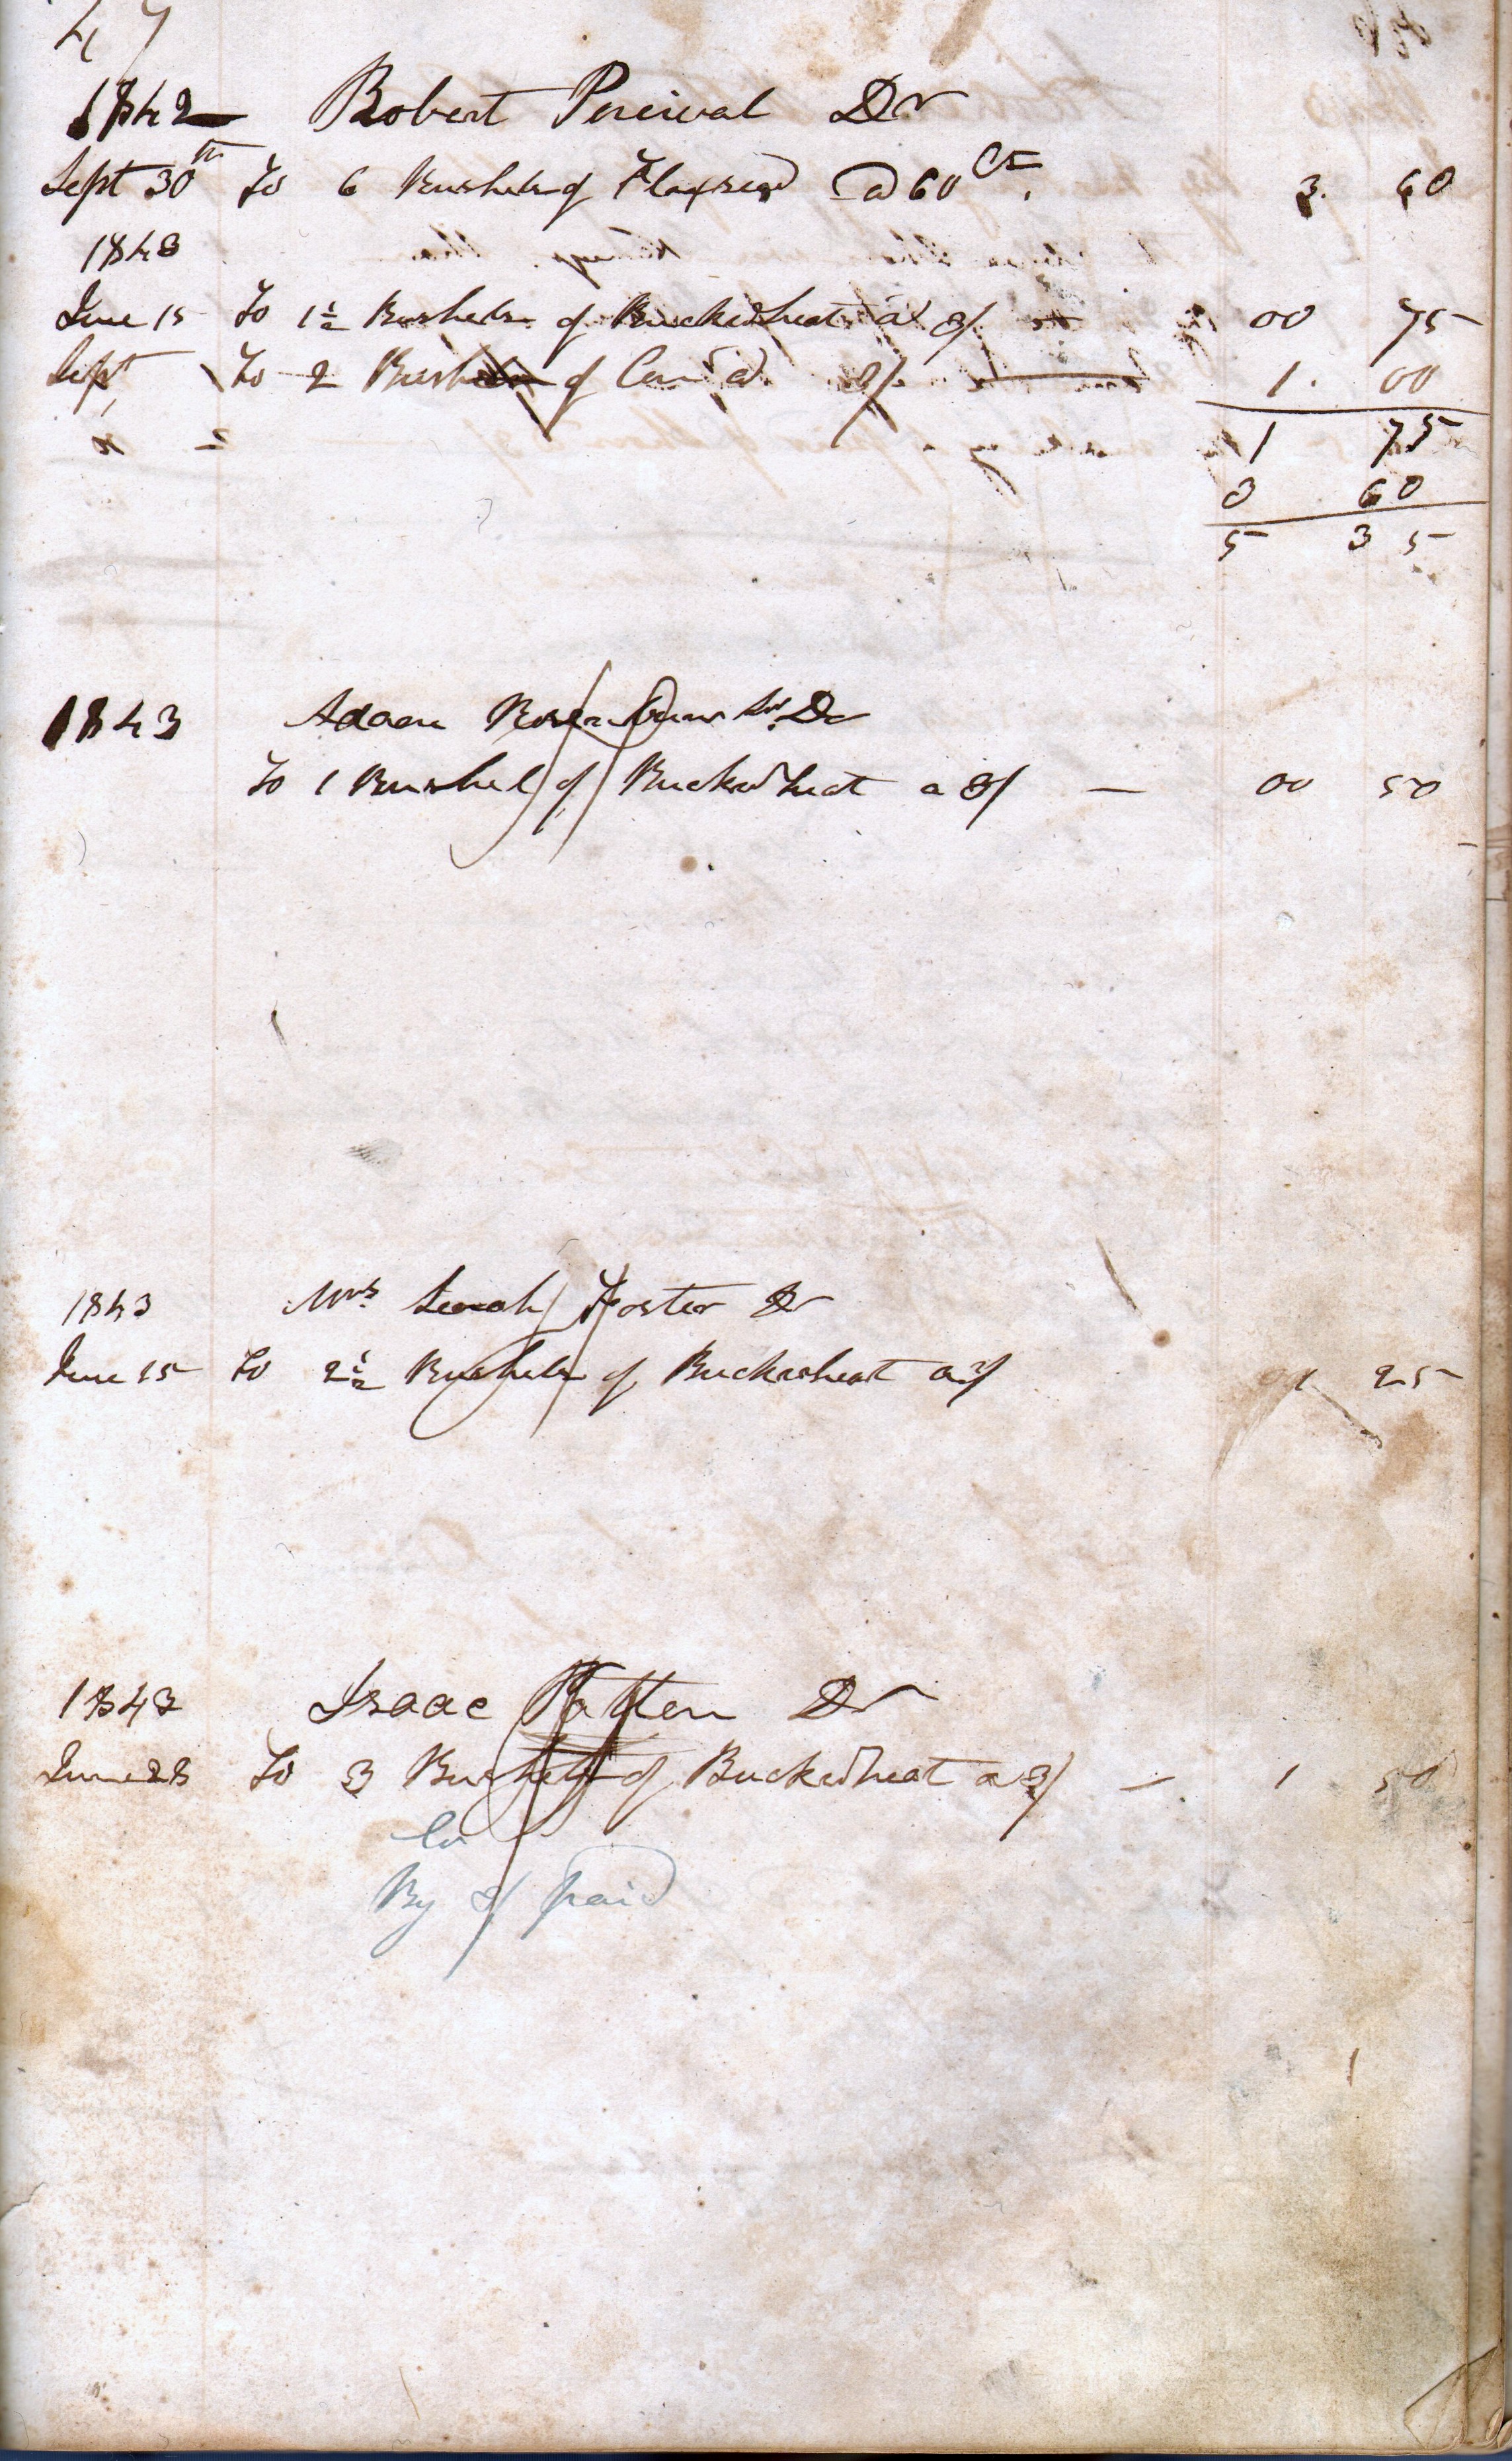 47
1842 Robert Percival Dr
Sept 30th To 6 Bushels of Flaxseed @ 60 Cts. 3. 60
1843
June 15 To 1½ Bushels of Buckwheat a 3/ 00 75
Sept To 2 Bushels of Corn a 3/ 1. 00
1 75
3 60
5 35
1843 Adam Dr
To 1 Bushel of Buckwheat a 3/ — 00 50
1843 Mrs Sarah Foster Dr
June 15 To 2½ Bushels of Buckwheat a 3/ 01 25
1843 Isaac Patten Dr
June 23 To 3 Bushels of Buckwheat a 3/ — 1 50
Cr
By paid